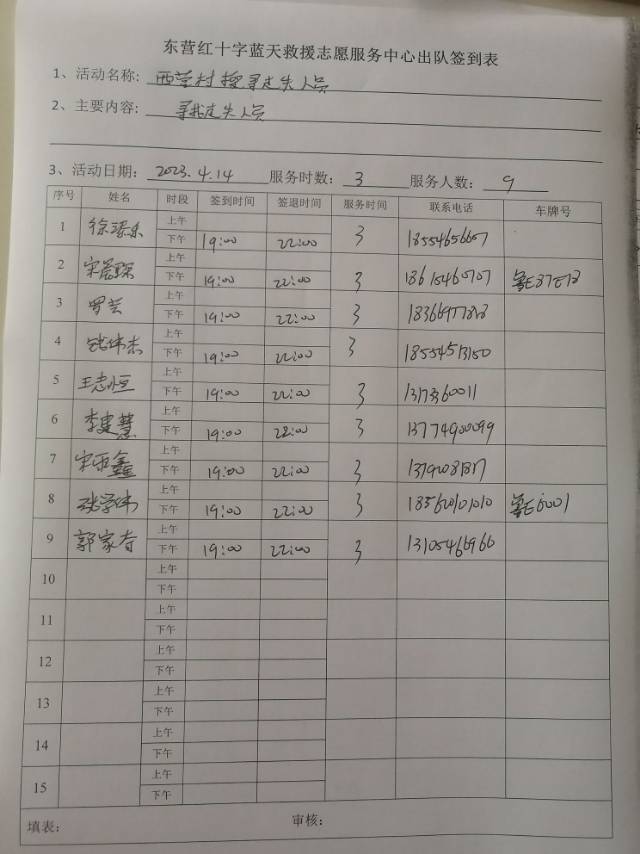 东营红十字蓝天救援志愿服务中心出队签到表
1、活动名称: 西营村搜寻走失人员
2、主要内容: 寻找走失人员
3、活动日期: 2023.4.14 服务时数: 3 服务人数: 9
序号 姓名 时段 签到时间 签退时间 服务时间 联系电话 车牌号
上午
1 下午 19:00 22:00 3 18554656607
上午
2 下午 19:00 22:00 3 18615460707
上午
3 罗芸 下午 19:00 22:00 3
上午
4 下午 19:00 22:00 3 18554513150
上午
5 王志恒 下午 19:00 22:00 3
上午
6 李建慧 下午 19:00 22:00 3 13774900099
上午
7 宋雨鑫 下午 19:00 22:00 3
上午
8 下午 19:00 22:00 3 18562010101
上午
9 郭家春 下午 19:00 22:00 3 13105466966
上午
10 下午
上午
11 下午
上午
12 下午
上午
13 下午
上午
14 下午
上午
15 下午
填表: 审核: